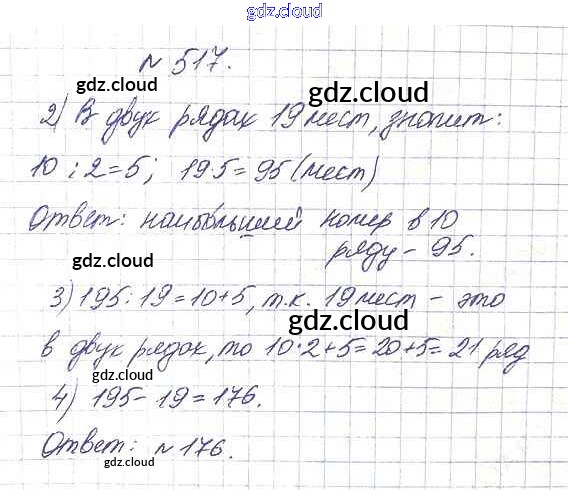 gdz.cloud
№ 517.
gdz.cloud
gdz.cloud
2) В двух рядах 19 мест, значит:
10 : 2 = 5; 19·5 = 95 (мест)
gdz.cloud
Ответ: наибольший номер в 10
gdz.cloud
ряду – 95.
gdz.cloud
3) 195 : 19 = 10 + 5, т.к. 19 мест – это
gdz.cloud
в двух рядах, то 10·2+5=20+5=21 ряд
gdz.cloud
4) 195 – 19 = 176.
Ответ: № 176.
gdz.cloud
gdz.cloud